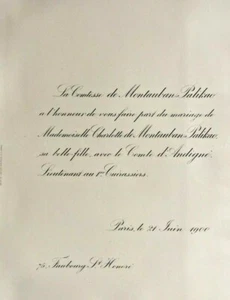 La Comtesse de Montauban-Palikao
a l'honneur de vous faire part du mariage de
Mademoiselle Charlotte de Montauban-Palikao,
sa belle-fille, avec le Comte d'Andigné,
Lieutenant au 1er Cuirassiers
Paris, le 21 Juin 1900
75, Faubourg St Honoré